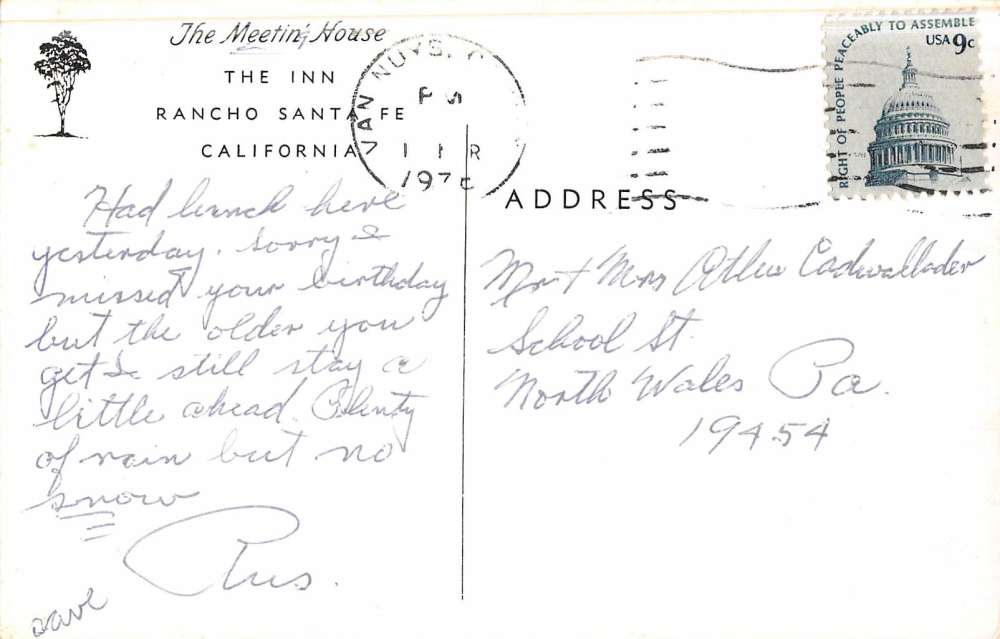 The Meetin' House
THE INN
RANCHO SANTA FE
CALIFORNIA
VAN NUYS, C
P
1 R
197
RIGHT OF PEOPLE PEACEABLY TO ASSEMBLE
USA 9c
ADDRESS
Had lunch here
yesterday. Sorry I
missed your birthday
but the older you
get I still stay a
little ahead. Plenty
of rain but no
snow
Rus.
save
Mr + Mrs Cadwallader
School St.
North Wales Pa.
19454